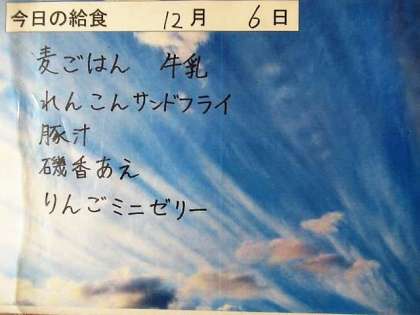 今日の給食 12月 6日
麦ごはん 牛乳
れんこんサンドフライ
豚汁
磯香あえ
りんごミニゼリー